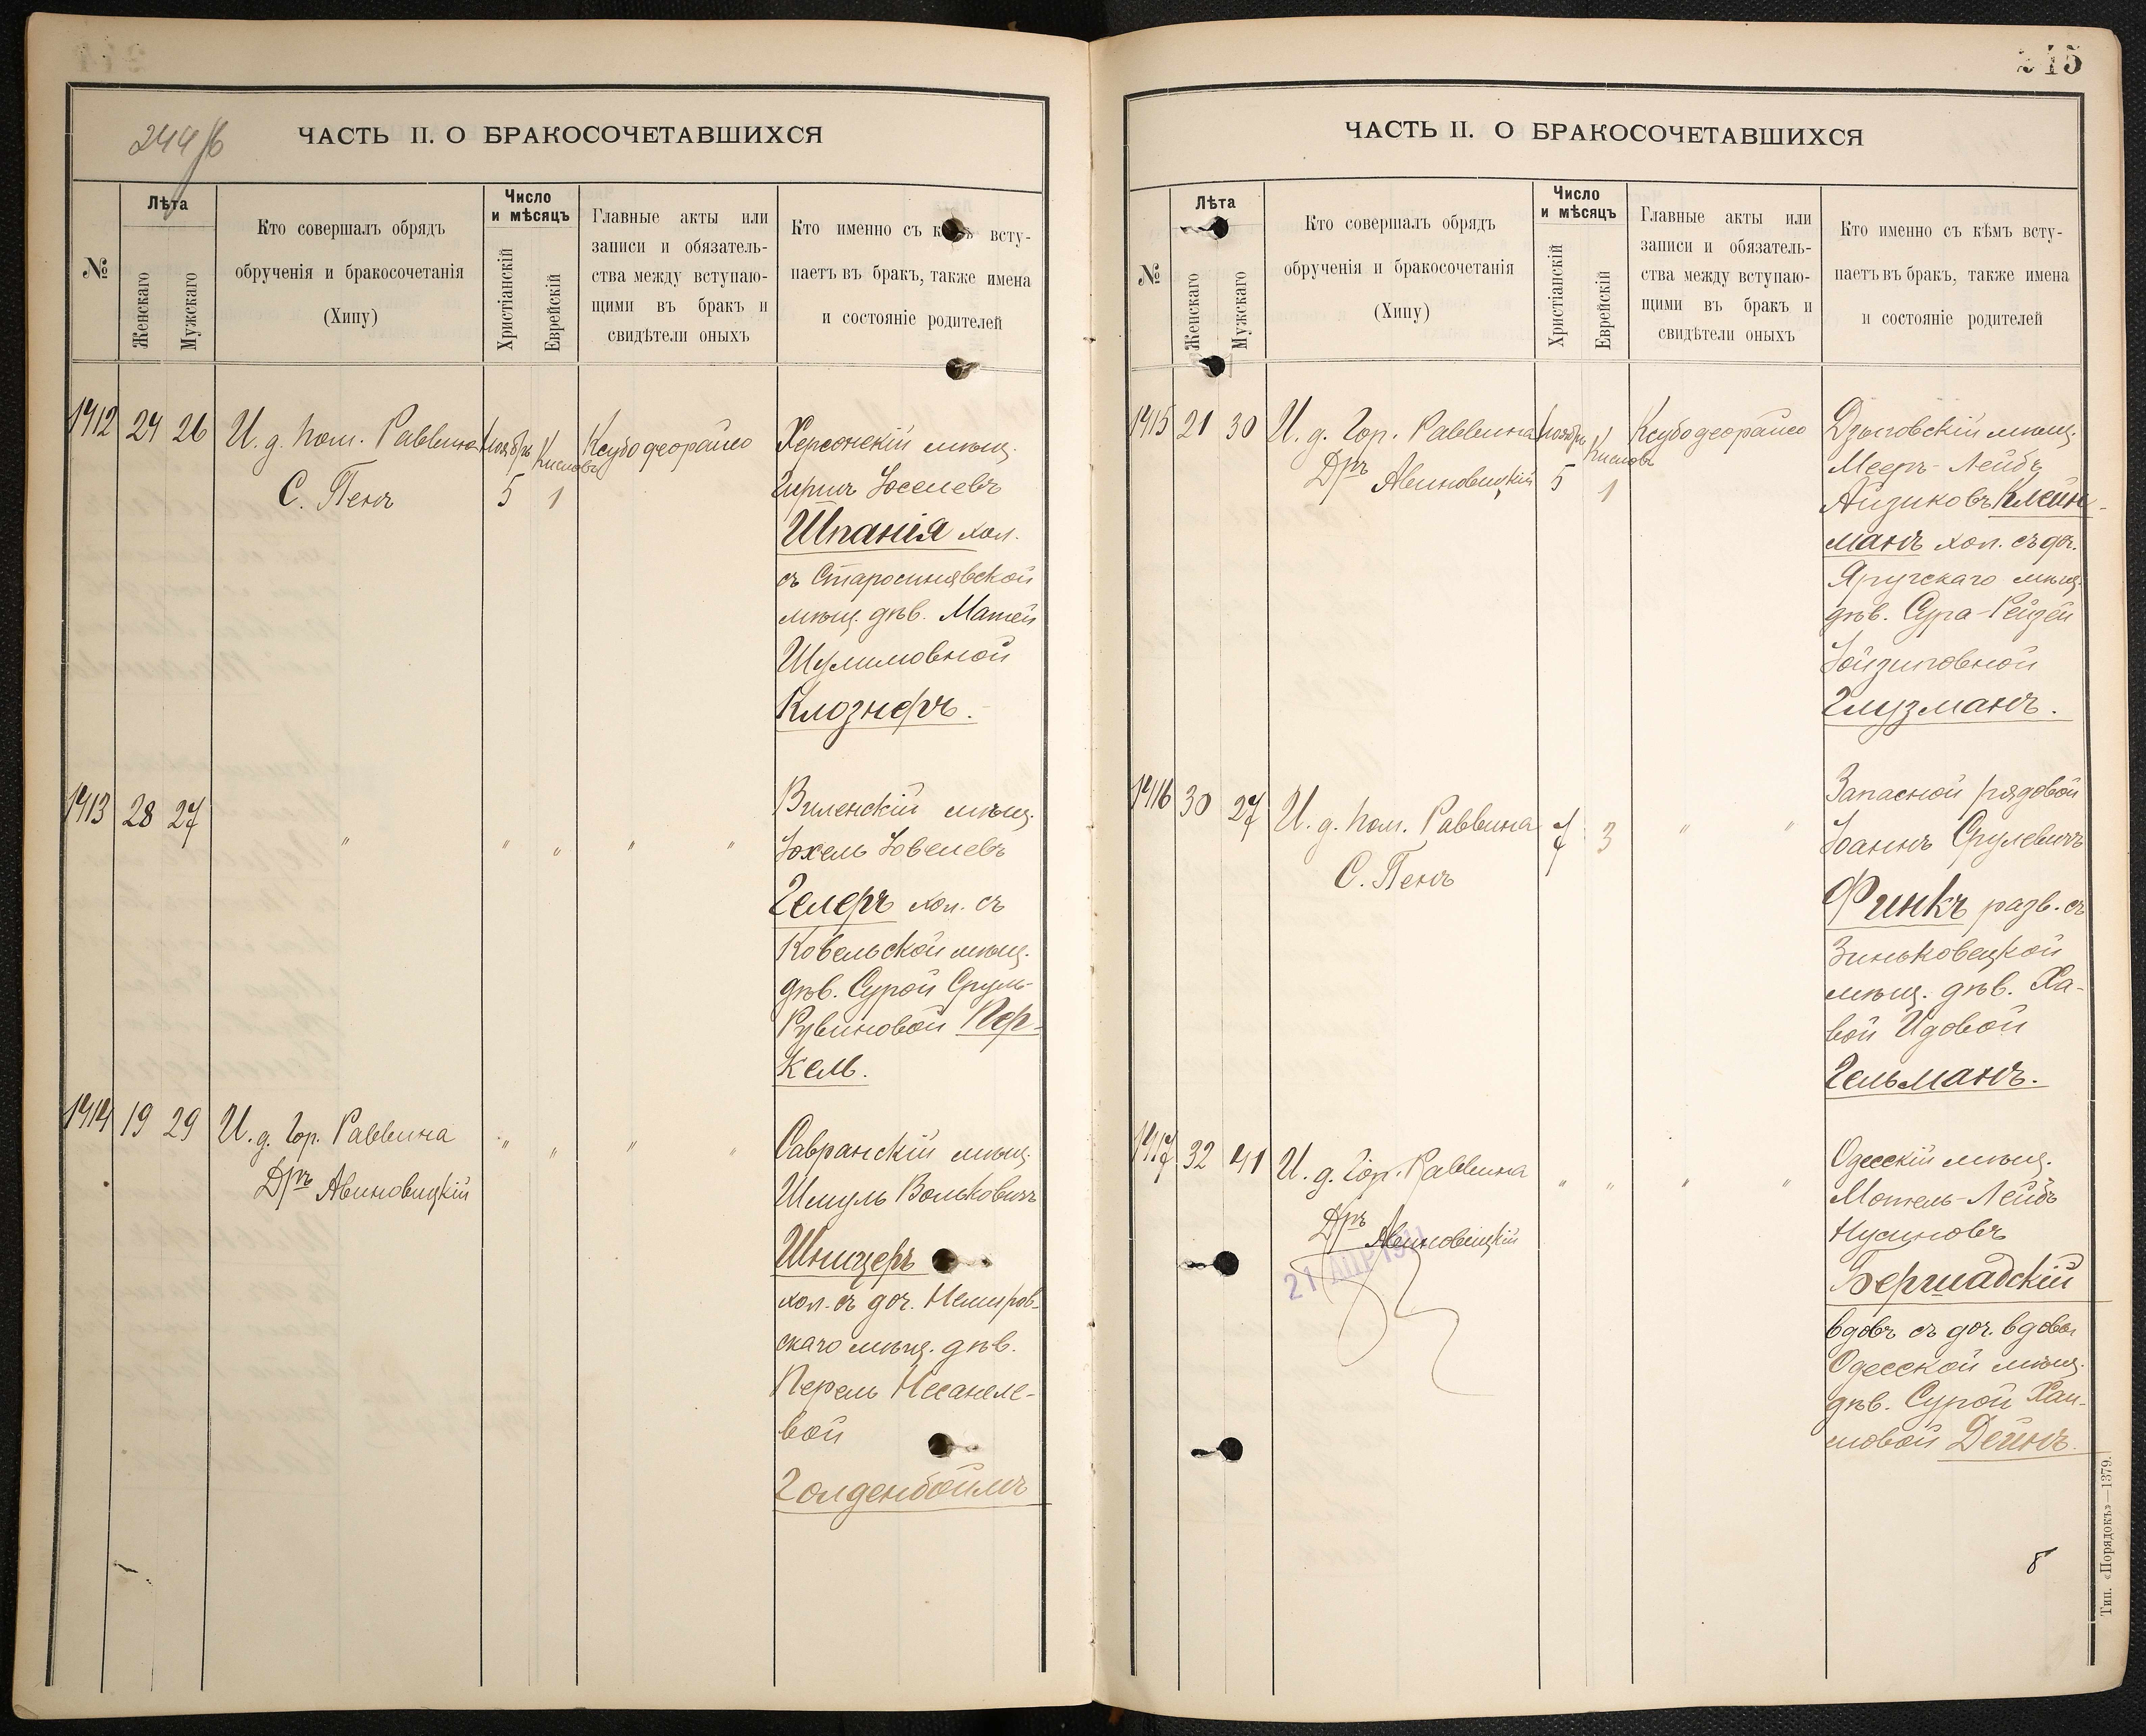 244/б
ЧАСТЬ II. О БРАКОСОЧЕТАВШИХСЯ
№
Лѣта
Женскаго
Мужскаго
Кто совершалъ обрядъ
обрученія и бракосочетанія
(Хипу)
Число
и мѣсяцъ
Христіанскій
Еврейскій
Главные акты или
записи и обязатель-
ства между вступаю-
щими въ бракъ и
свидѣтели оныхъ
Кто именно съ кѣмъ всту-
паетъ въ бракъ, также имена
и состояніе родителей
1412 24 26 И. д. пом. Раввина Ноябрь Кислевъ Ксубо деорайсо
С. Пенъ 5 1
Херсонскій мѣщ.
Гершъ Іоселевъ
Шпанія хол.
съ Старосинявской
мѣщ. дѣв. Матей
Шулимовной
Клознеръ.
1413 28 27 " " " " "
Виленскій мѣщ.
Іохель Іовелевъ
Гелеръ хол. съ
Ковельской мѣщ.
дѣв. Сурой Сруль-
Рувиновой Пер-
кель.
1414 19 29 И. д. Гор. Раввина " " " "
Дръ Авиновицкій
Савранскій мѣщ.
Шмуль Вольковичъ
Шницеръ
хол. съ доч. Немиров-
скаго мѣщ. дѣв.
Перель Несанеле-
вой
Голденбоймъ
315
ЧАСТЬ II. О БРАКОСОЧЕТАВШИХСЯ
№
Лѣта
Женскаго
Мужскаго
Кто совершалъ обрядъ
обрученія и бракосочетанія
(Хипу)
Число
и мѣсяцъ
Христіанскій
Еврейскій
Главные акты или
записи и обязатель-
ства между вступаю-
щими въ бракъ и
свидѣтели оныхъ
Кто именно съ кѣмъ всту-
паетъ въ бракъ, также имена
и состояніе родителей
1415 21 30 И. д. Гор. Раввина Ноябрь Кислевъ Ксубо деорайсо
Дръ Авиновицкій 5 1
Дзыговскій мѣщ.
Мееръ-Лейбъ
Айзиковъ Клейн-
манъ хол. съ доч.
Яругскаго мѣщ.
дѣв. Сура-Рейзей
Іойзиповной
Глузманъ.
1416 30 27 И. д. пом. Раввина 7 3 " "
С. Пенъ
Запасной рядовой
Іоаннъ Срулевичъ
Финкъ разв. съ
Зиньковецкой
мѣщ. дѣв. Ха-
вой Идовой
Гельманъ.
1417 32 41 И. д. Гор. Раввина " " " "
Дръ Авиновицкій
21 АПР 191
Одесскій мѣщ.
Мотель-Лейбъ
Нусиновъ
Бершадскій
вдовъ съ доч. вдовы
Одесской мѣщ.
дѣв. Сурой Хаи-
мовой Дейнъ.
8
Тип. «Порядокъ»—1379.